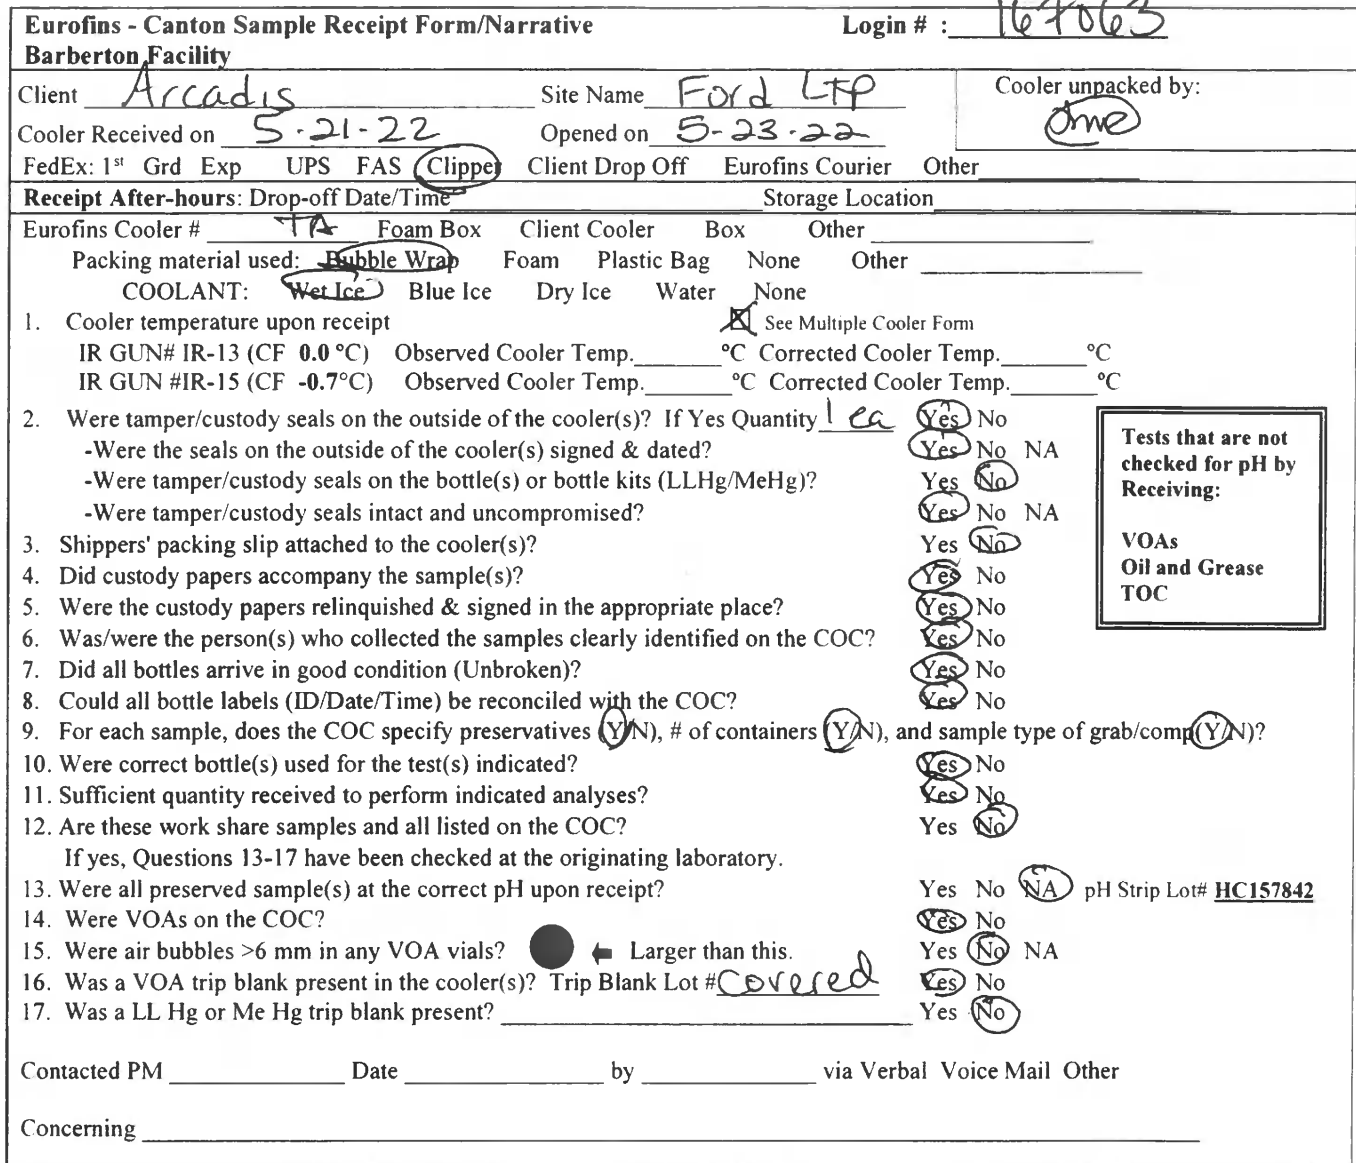 Eurofins - Canton Sample Receipt Form/Narrative Login # : 167063
Barberton Facility
Client Arcadis Site Name Ford LTP Cooler unpacked by:
Cooler Received on 5-21-22 Opened on 5-23-22
FedEx: 1st Grd Exp UPS FAS Clipper Client Drop Off Eurofins Courier Other
Receipt After-hours: Drop-off Date/Time Storage Location
Eurofins Cooler # TA Foam Box Client Cooler Box Other
Packing material used: Bubble Wrap Foam Plastic Bag None Other
COOLANT: Wet Ice Blue Ice Dry Ice Water None
1. Cooler temperature upon receipt See Multiple Cooler Form
IR GUN# IR-13 (CF 0.0 °C) Observed Cooler Temp. °C Corrected Cooler Temp. °C
IR GUN #IR-15 (CF -0.7°C) Observed Cooler Temp. °C Corrected Cooler Temp. °C
2. Were tamper/custody seals on the outside of the cooler(s)? If Yes Quantity 1 ea Yes No
-Were the seals on the outside of the cooler(s) signed & dated? Yes No NA
-Were tamper/custody seals on the bottle(s) or bottle kits (LLHg/MeHg)? Yes No
-Were tamper/custody seals intact and uncompromised? Yes No NA
3. Shippers' packing slip attached to the cooler(s)? Yes No
4. Did custody papers accompany the sample(s)? Yes No
5. Were the custody papers relinquished & signed in the appropriate place? Yes No
6. Was/were the person(s) who collected the samples clearly identified on the COC? Yes No
7. Did all bottles arrive in good condition (Unbroken)? Yes No
8. Could all bottle labels (ID/Date/Time) be reconciled with the COC? Yes No
Tests that are not
checked for pH by
Receiving:
VOAs
Oil and Grease
TOC
9. For each sample, does the COC specify preservatives (Y/N), # of containers (Y/N), and sample type of grab/comp(Y/N)?
10. Were correct bottle(s) used for the test(s) indicated? Yes No
11. Sufficient quantity received to perform indicated analyses? Yes No
12. Are these work share samples and all listed on the COC? Yes No
If yes, Questions 13-17 have been checked at the originating laboratory.
13. Were all preserved sample(s) at the correct pH upon receipt? Yes No NA pH Strip Lot# HC157842
14. Were VOAs on the COC? Yes No
15. Were air bubbles >6 mm in any VOA vials? Larger than this. Yes No NA
16. Was a VOA trip blank present in the cooler(s)? Trip Blank Lot # Covered Yes No
17. Was a LL Hg or Me Hg trip blank present? Yes No
Contacted PM Date by via Verbal Voice Mail Other
Concerning